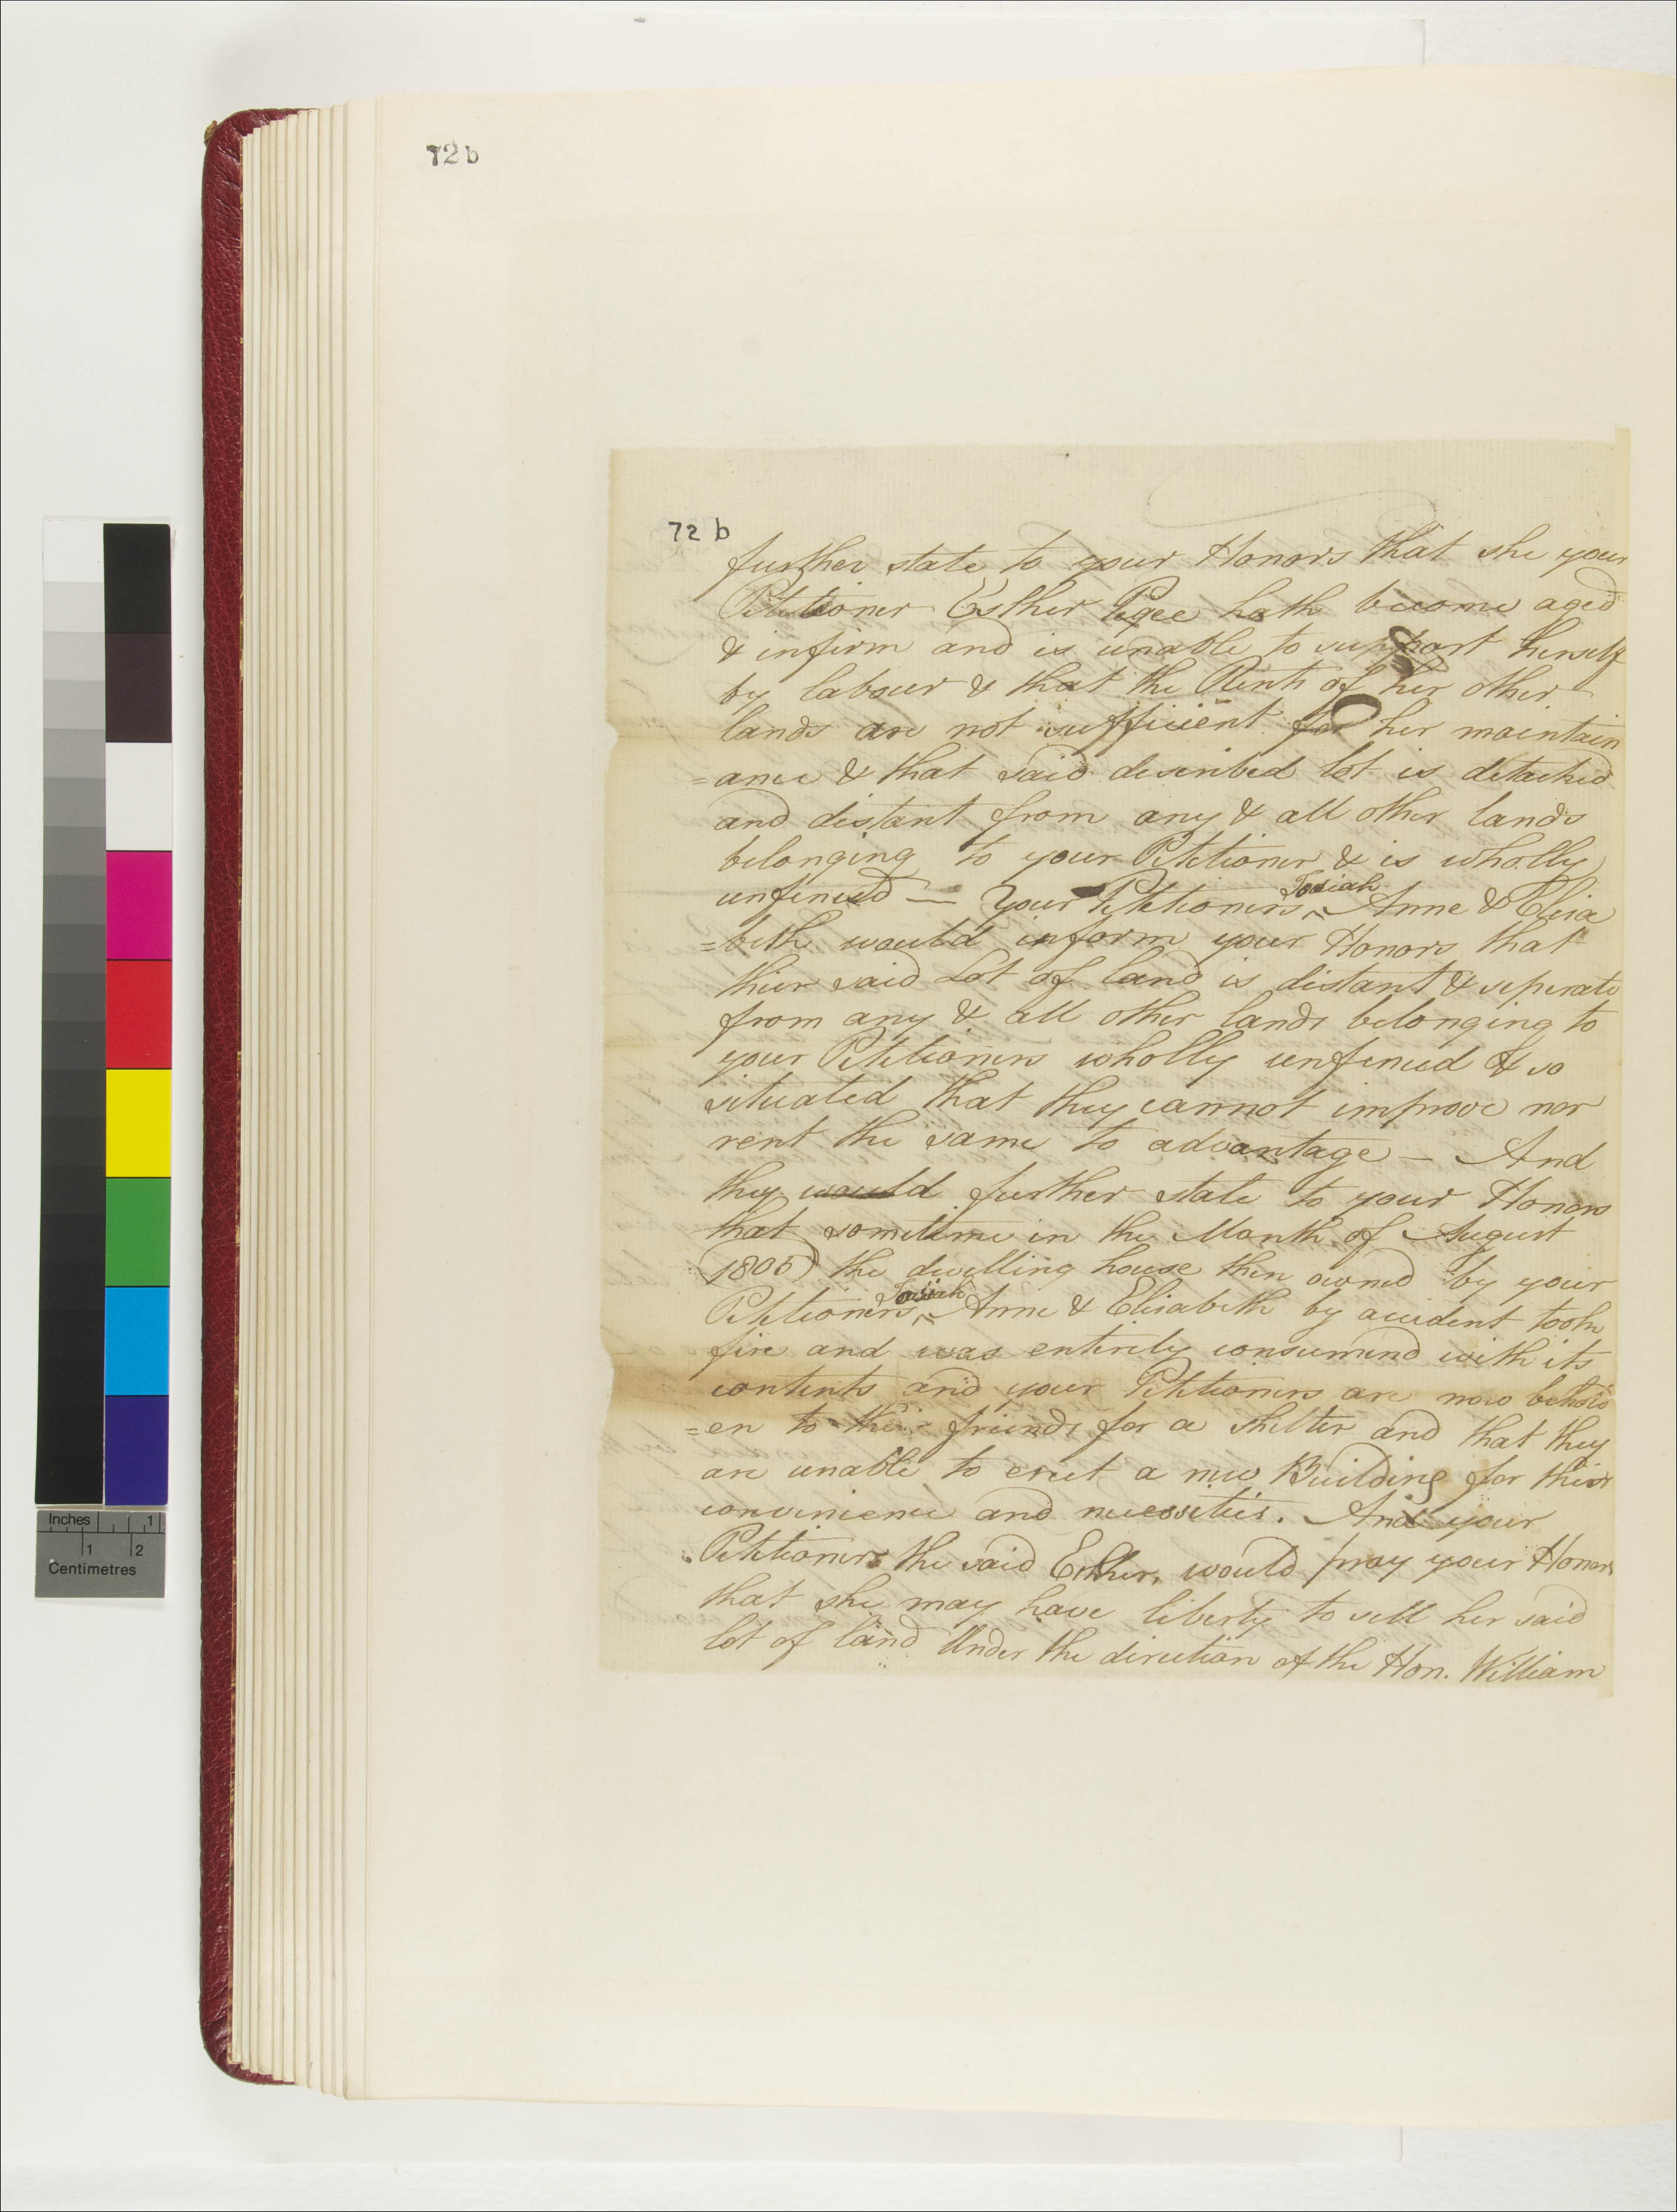 72 b
72 b
further state to your Honors that she your
Petitioner Esther Pegee hath become aged
& infirm and is unable to support herself
by labour & that the Rents of her other
lands are not sufficient for her maintain
=ance & that said described lot is detached
and distant from any & all other lands
belonging to your Petitioner & is wholly
unfenced — Your Petitioners, Josiah Anne & Eliza
=beth would inform your Honors that
thier said Lot of land is distant & seperate
from any & all other lands belonging to
your Petitioners wholly unfenced & so
situated that they cannot improve nor
rent the same to advantage — And
they would further state to your Honors
that sometime in the Month of August
1805) the dwelling house then owned by your
Petitioners, Josiah Anne & Elisabeth by accident tooke
fire and was entirely consumend with its
contents and your Petitioners are now behold
=en to their friends for a shelter and that they
are unable to erect a new Building for thier
convenience and necessities. And your
Petitioners the said Esther, would pray your Honors
that she may have liberty to sell her said
lot of land Under the direction of the Hon. William
Inches 1
1 2
Centimetres